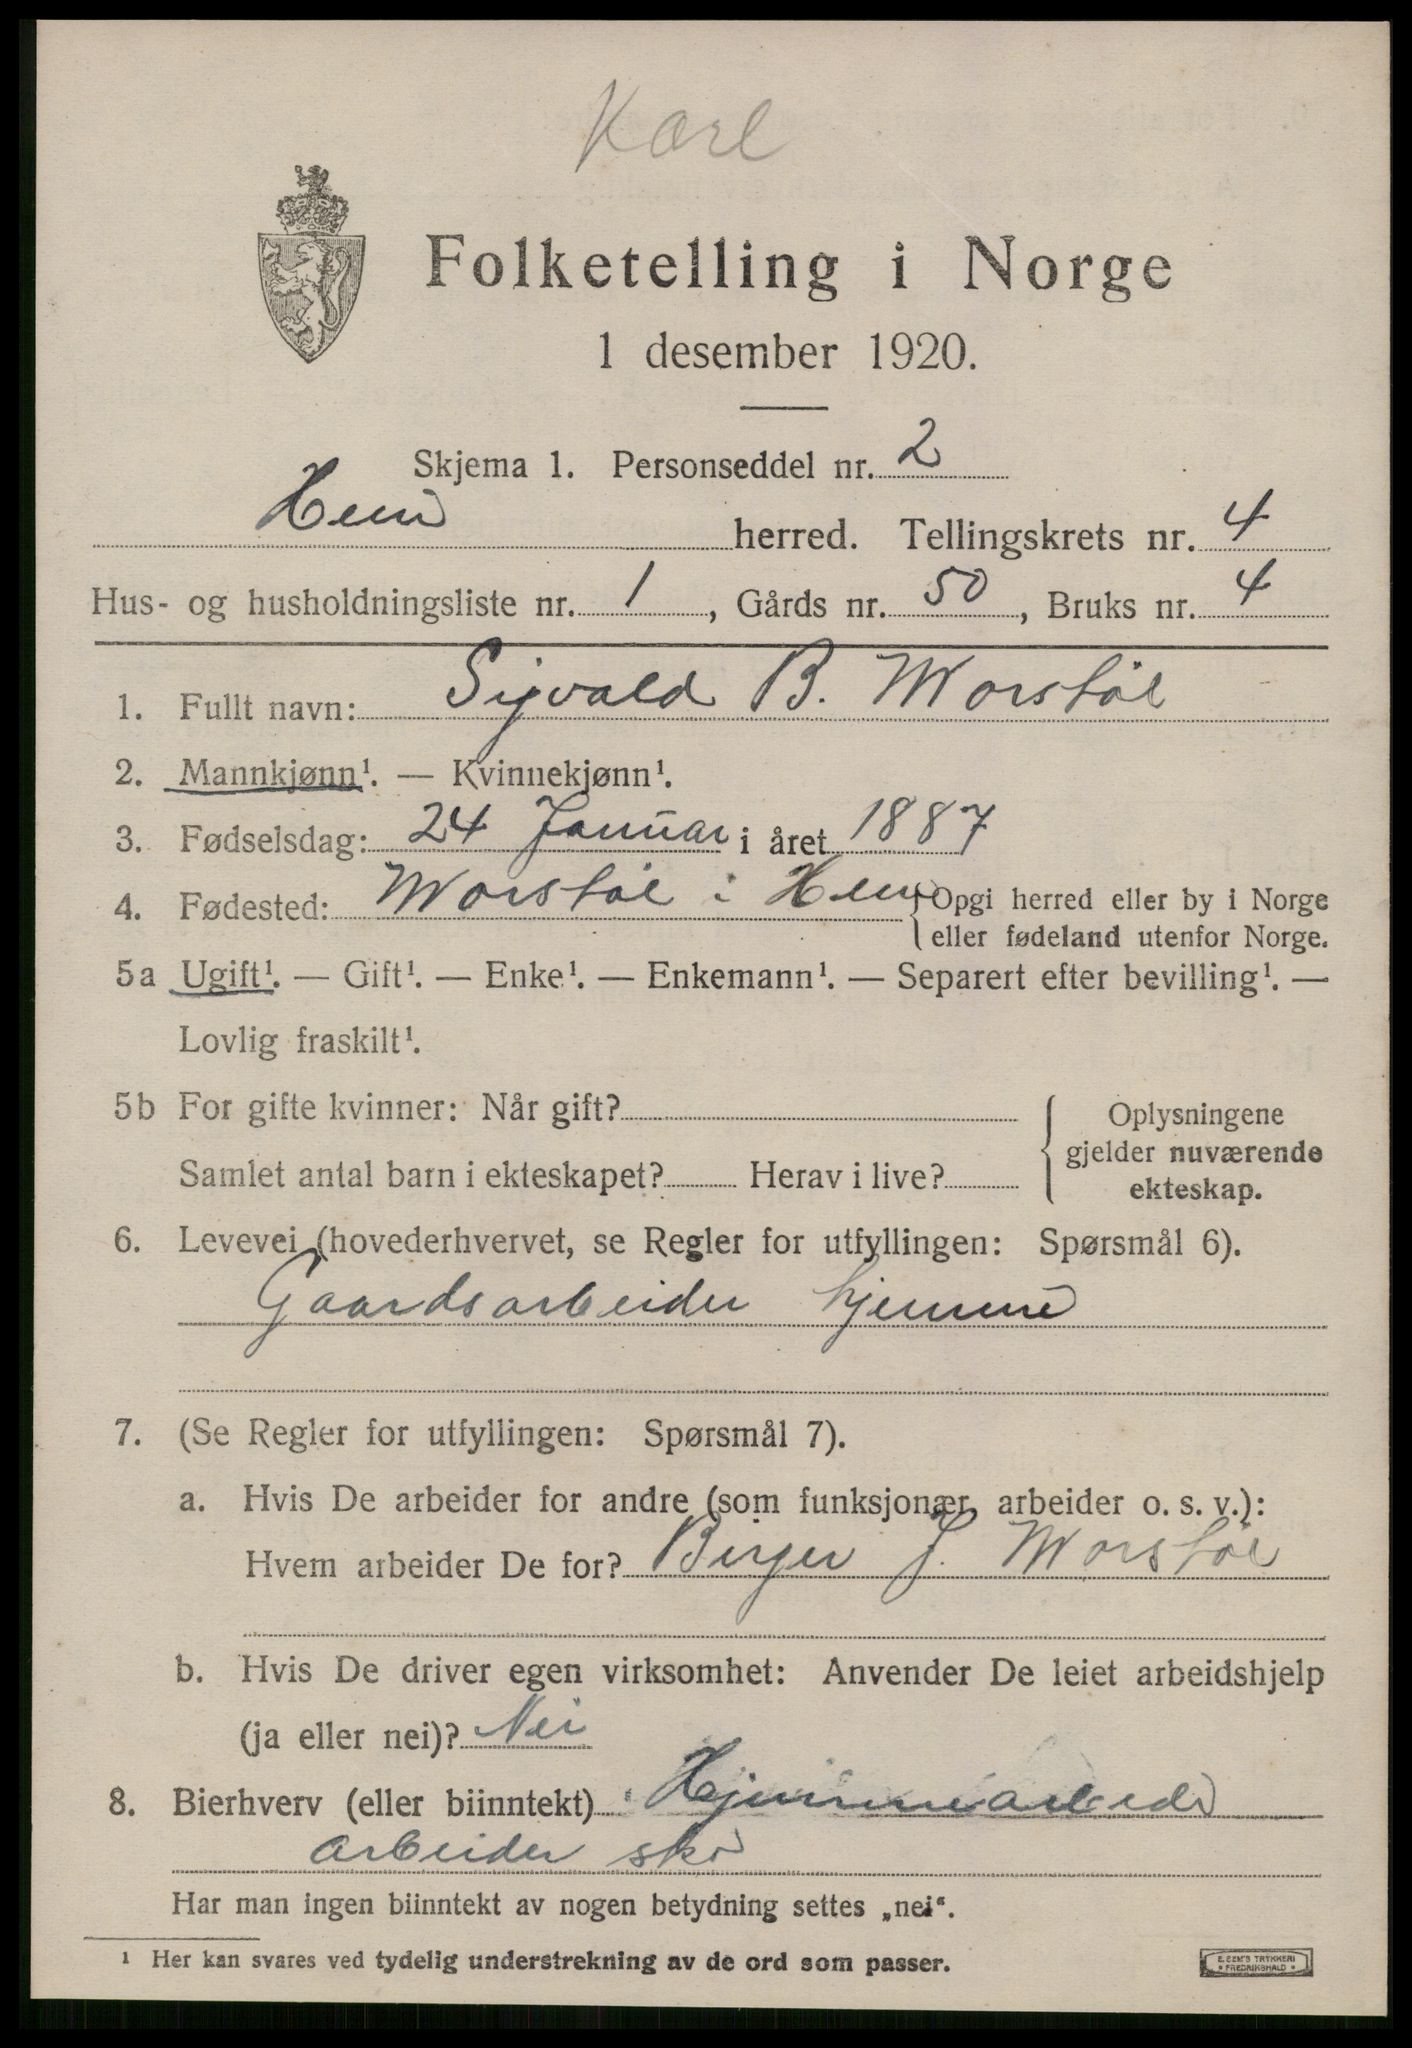 Karl
Folketelling i Norge
1 desember 1920.
Skjema 1. Personseddel nr. 2
Hem herred. Tellingskrets nr. 4
Hus- og husholdningsliste nr. 1, Gårds nr. 50, Bruks nr. 4
1. Fullt navn: Sigvald B. Morstøl
2. Mannkjønn¹. — Kvinnekjønn¹.
3. Fødselsdag: 24 Januar i året 1887
4. Fødested: Morstøl i Hem {Opgi herred eller by i Norge
eller fødeland utenfor Norge.
5a Ugift¹. — Gift¹. — Enke¹. — Enkemann¹. — Separert efter bevilling¹. —
Lovlig fraskilt¹.
5b For gifte kvinner: Når gift?
Samlet antal barn i ekteskapet? Herav i live?
Oplysningene
gjelder nuværende
ekteskap.
6. Levevei (hovederhvervet, se Regler for utfyllingen: Spørsmål 6).
Gaardsarbeider hjemme
7. (Se Regler for utfyllingen: Spørsmål 7).
a. Hvis De arbeider for andre (som funksjonær, arbeider o. s. v.):
Hvem arbeider De for? Birger J. Morstøl
b. Hvis De driver egen virksomhet: Anvender De leiet arbeidshjelp
(ja eller nei)? Nei
8. Bierhverv (eller biinntekt)
arbeider sko
Har man ingen biinntekt av nogen betydning settes „nei“.
¹ Her kan svares ved tydelig understrekning av de ord som passer.
E. SEM'S TRYKKERI
* FREDRIKSHALD *